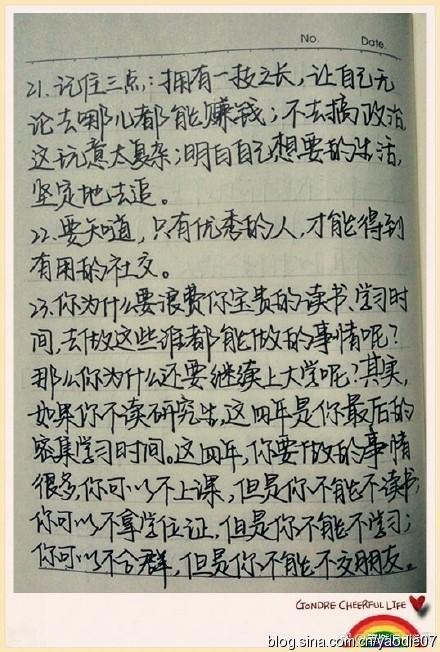 No.    Date.
21. 记住三点：拥有一技之长，让自己无
论去哪儿都能赚钱；不去搞政治，
这玩意太复杂；明白自己想要的生活，
坚定地去追。
22. 要知道，只有优秀的人，才能得到
有用的社交。
23. 你为什么要浪费你宝贵的读书、学习时
间，去做这些谁都能做的事情呢？
那么你为什么还要继续上大学呢？其实，
如果你不读研究生，这四年是你最后的
密集学习时间。这四年，你要做的事情
很多，你可以不上课，但是你不能不读书；
你可以不拿学位证，但是你不能不学习；
你可以不合群，但是你不能不交朋友。
GONDRE CHEERFUL LIFE
blog.sina.com.cn/yaodie07